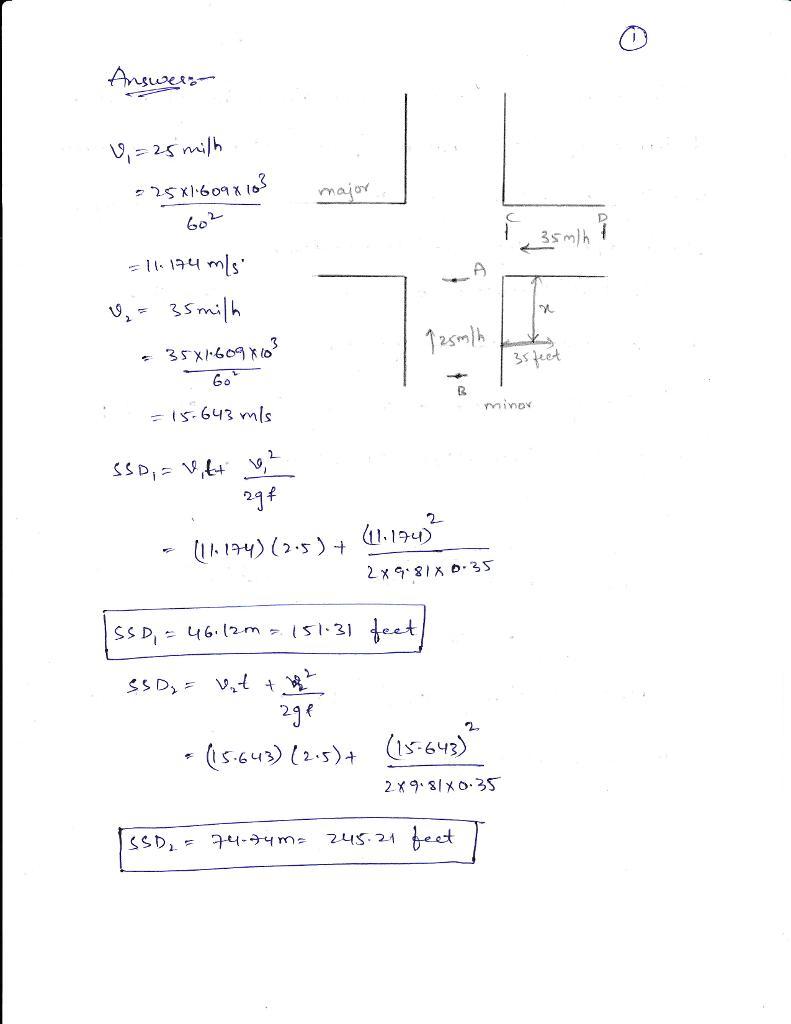 1
Answer:-
V₁ = 25 mi/h
= 25 x 1.609 x 10³
60²
= 11.174 m/s.
V₂ = 35 mi/h
= 35 x 1.609 x 10³
60²
= 15.643 m/s
major
C D
35 m/h
A
x
25 m/h
35 feet
B
minor
SSD₁ = V₁t + V₁²
2gf
= (11.174) (2.5) + (11.174)²
2 x 9.81 x 0.35
SSD₁ = 46.12m = 151.31 feet
SSD₂ = V₂t + V₂²
2gf
= (15.643) (2.5) + (15.643)²
2 x 9.81 x 0.35
SSD₂ = 74.74m = 245.21 feet